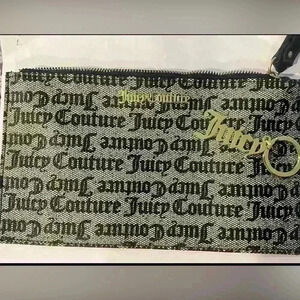 Couture Juicy Couture Juicy Couture
Juicy Couture
Juicy Couture Juicy Couture
Juicy
Juicy Couture Juicy Couture
Juicy Couture Juicy Couture Juicy
Juicy Couture Juicy Couture
Juicy Couture Juicy Couture Juicy
Juicy Couture Juicy Couture